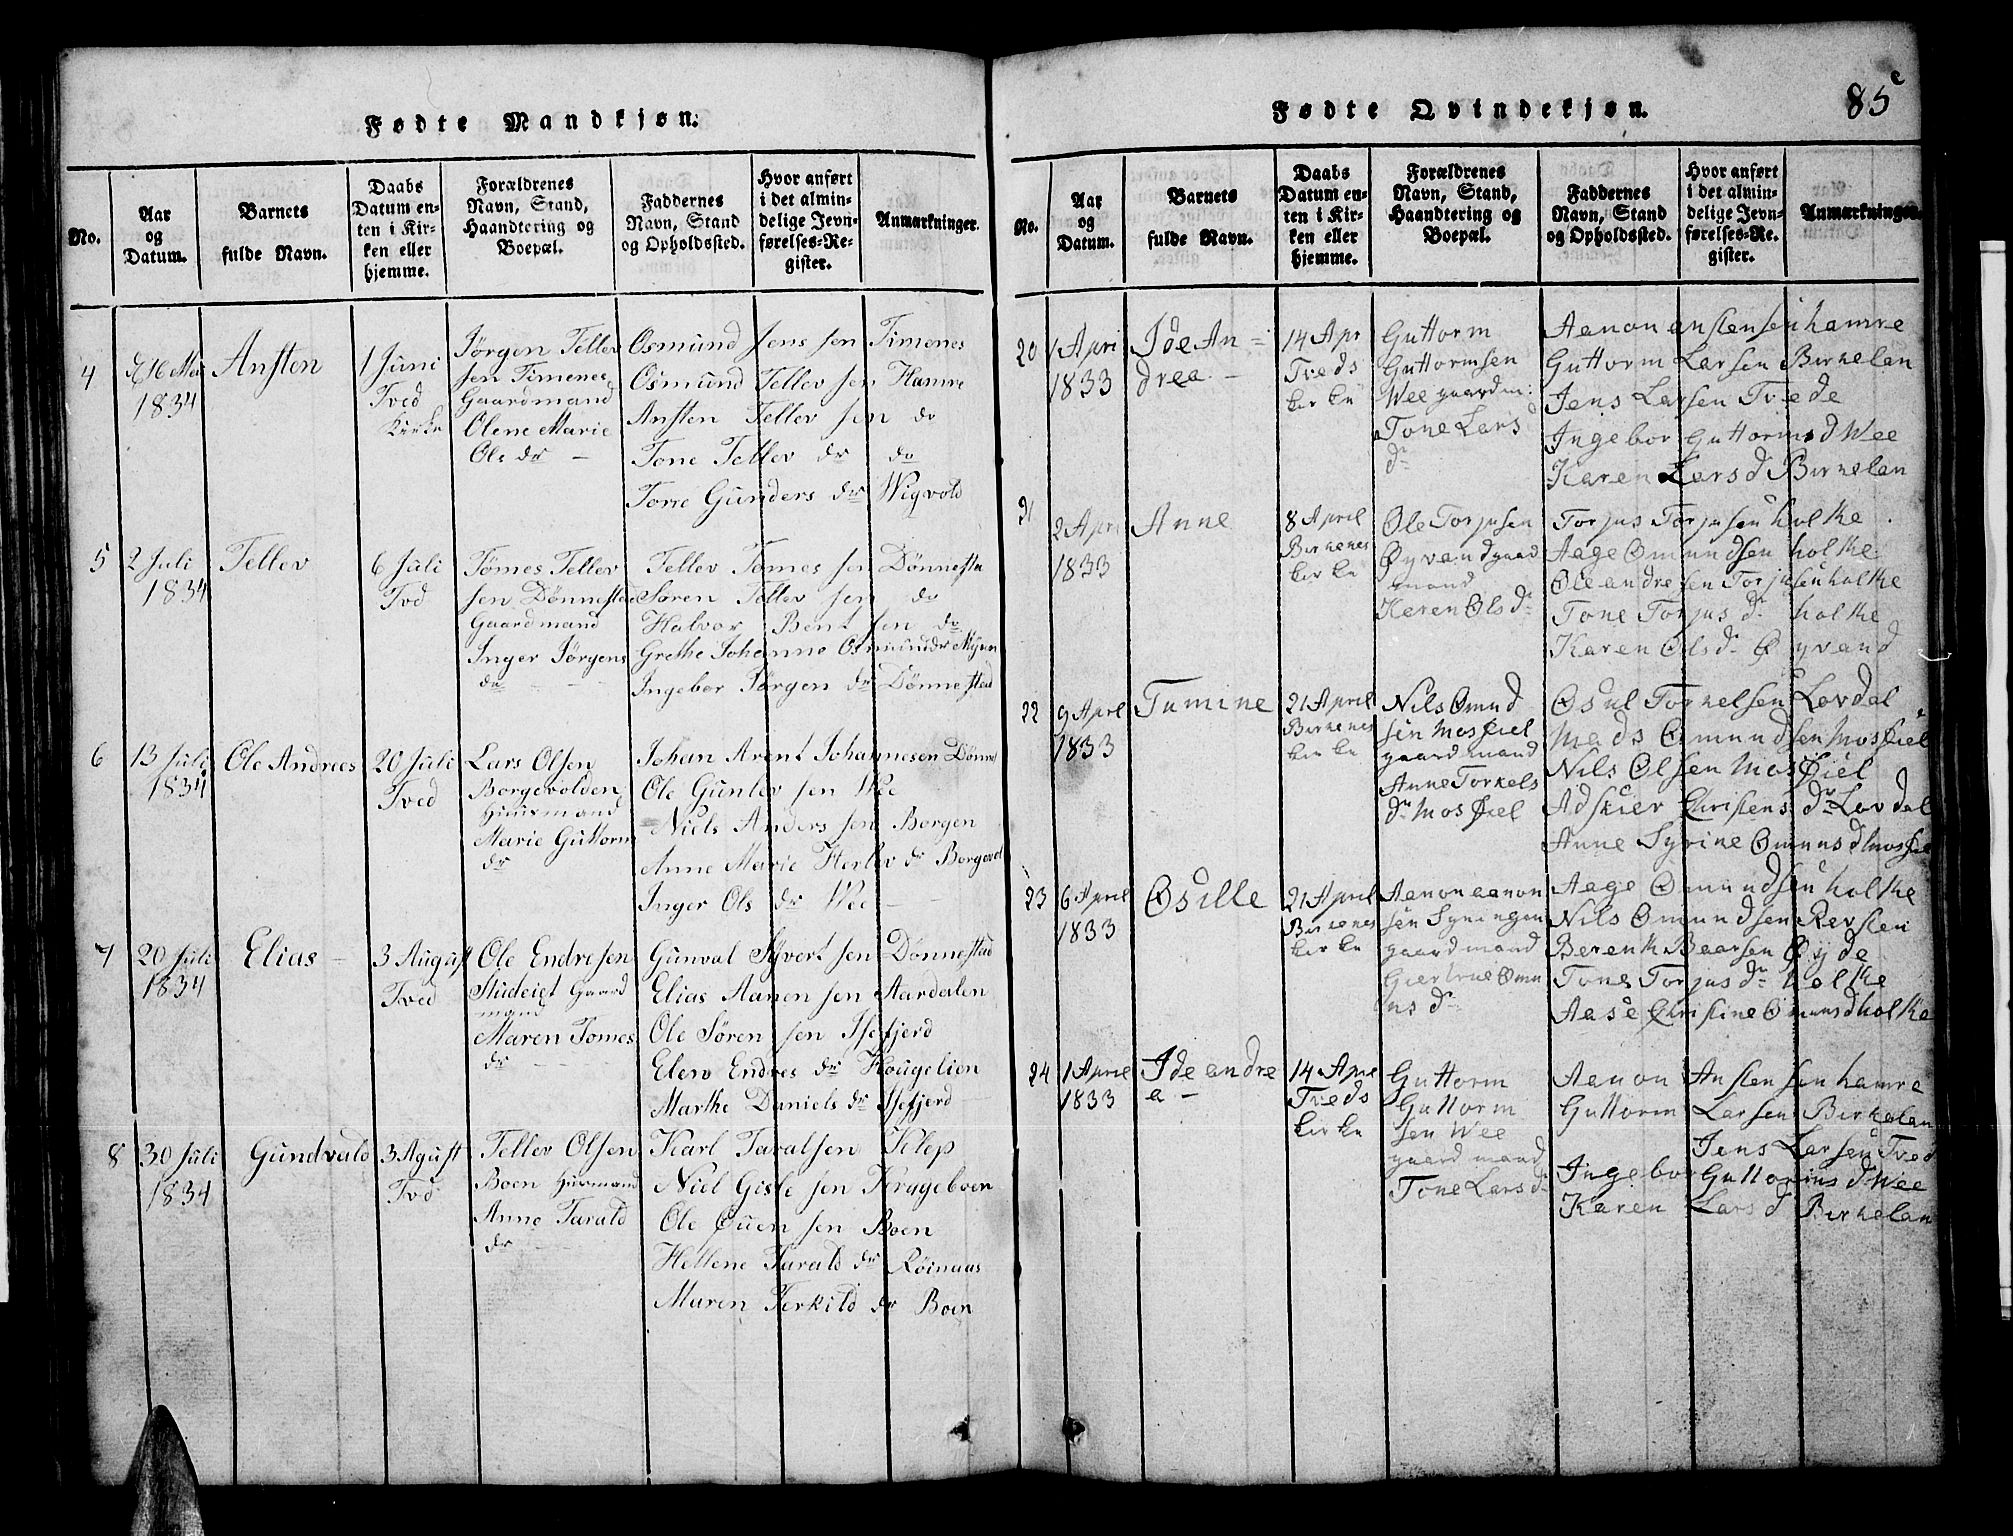 Fødte Mandkjøn.
No.
Aar
og
Datum.
Barnets
fulde Navn.
Daabs
Datum en-
ten i Kir-
ken eller
hjemme.
Forældrenes
Navn, Stand,
Haandtering og
Boepæl.
Faddernes
Navn, Stand
og Opholdssted.
Hvor anført
i det almin-
delige Jevn-
førelses-Re-
gister.
Anmærkninger.
4
16 Mai
1834
Ansten
1 Juni
Tved
Kirke
Jörgen Tellev
sen Timenes
Gaardmand
Olene Marie
Ols dr
Osmund Jens sen Timenes
Osmund Tellev sen Hamre
Ansten Tellev sen do
Tone Tellev dr do
Torre Gunders dr Wigvold
5
2 Juli
1834
Tellev
6 Juli
Tvd
Tömes Tellev
sen Dönnestad
Gaardmand
Inger Jörgens
dr
Tellev Tomes sen Dönnesta
Sören Tellev sen do
Halvor Bent sen do
Grethe Johanne Osmundr Myren
Ingebor Jörgen dr Dönnestad
6
13 Juli
1834
Ole Andreas
20 Juli
Tved
Lars Olsen
Borgevolden
Huusmand
Marie Guttorm
dr
Johan Arent Johannesen Dönne
Ole Gunlev sen Wee
Niels Anders sen Borgen
Anne Marie Herlev dr Borgevol
Inger Ols dr Wee
7
20 Juli
1834
Elias
3 August
Tved
Ole Endresen
Studeigt Gaard
mand
Maren Tomes
dr
Gunval Syvert sen Dönnestad
Elias Aanen sen Aardalen
Ole Sören sen Isefjerd
Elen Endres dr Hougelien
Marthe Daniels dr Isefjerd
8
30 Juli
1834
Gundvald
3 Agust
Tvd
Tellev Olsen
Boen Husmand
Anne Tarald
dr
Karl Taralsen Klep
Niel Gisle sen Krygeboen
Ole Ouen sen Boen
Hellene Tarald dr Röinaas
Maren Terkild dr Boen
Fødte Qvindekjøn.
85
No.
Aar
og
Datum.
Barnets
fulde Navn.
Daabs
Datum en-
ten i Kir-
ken eller
hjemme.
Forældrenes
Navn, Stand,
Haandtering og
Boepæl.
Faddernes
Navn, Stand
og Opholdssted.
Hvor anført
i det almin-
delige Jevn-
førelses-Re-
gister.
Anmærkninger.
20
1 Apri
1833
Ide An=
drea
14 Apr
Tveds
kirke
Guttorm
Guttormsen
Wee gaardm:
Tone Lars
dr
Aanon anstensen hamre
Guttorm Larsen Birkelan
Jens Larsen Tvede
Ingebor Guttorms d Wee
Karen Lars d Birkelan
21
2 Apri
1833
Anne
8 April
Birkenes
kirke
Ole Torjusen
Øyvand gaard
mand
Karen Ols dr
Torjus Torjusen holke
Aage Omundsen holke
Ole andresen Torjusen holke
Tone Torjus dr holke
Karen Ols dr Øyvand
22
9 April
1833
Tomine
21 April
Birkenes
kirke
Nils Omund
sen Mosfiel
gaardmand
Anne Torkels
dr Mosfiel
Osul Torkelsen Lovdal
Mads Omundsen Mosfiel
Nils Olsen Mosfiel
Adskier Christens dr Lovdal
Anne Syrine Omunsd Mosfiel
23
6 April
1833
Osille
21 April
Birkenes
kirke
Aanon aanon
sen Syningen
gaardmand
Giertrue Omu
ns dr
Aage Omundsen holke
Nils Omundsen Revsten
Berenh Baarsen Øyde
Tone Torjus dr holke
Aase Christine Omunsd holke
24
1 April
1833
Ide andre
a
14 Apre
Tveds
kirke
Guttorm
Guttorm
sen Wee
gaardmand
Tone Lars dr
Aanon Anstensen hamre
Guttorm Larsen Birkelan
Jens Larsen Tved
Ingebor Guttorms d Wee
Karen Lars d Birkelan